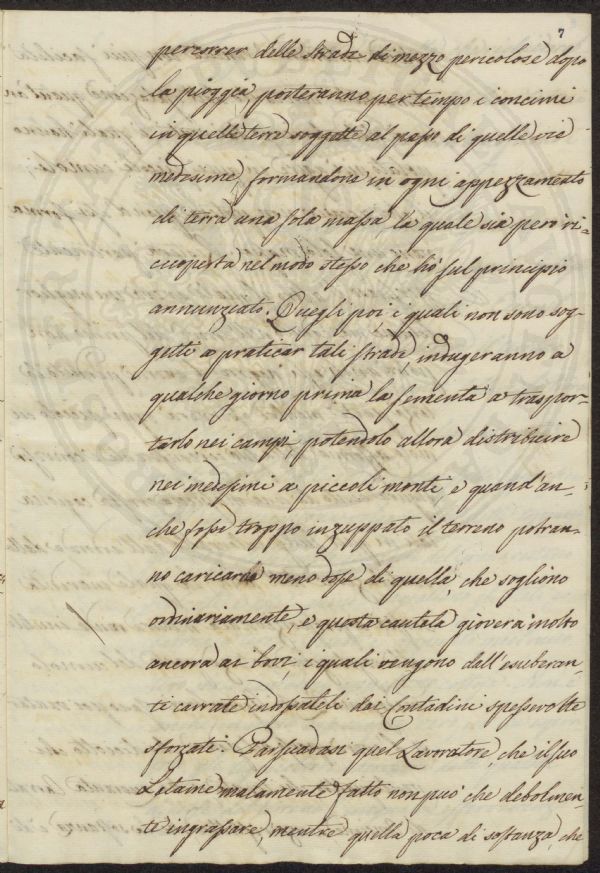 7
percorrer delle strade di mezzo pericolose dopo
la pioggia, porteranno per tempo i concimi
in quelle terre soggette al passo di quelle vie
medesime, formandone in ogni appezzamento
di terra una sola massa la quale sia però ri=
ccoperta nel modo stesso che hò sul principio
annunziato. Quegli poi, i quali non sono sog-
getti a praticar tali strade, indugeranno a
qualche giorno prima la sementa a traspor-
tarlo nei campi, potendolo allora distribuire
nei medesimi a piccoli monti, e quand'an-
che fosse troppo inzuppato il terreno potran-
no caricarne meno dose di quella, che sogliono
ordinariamente, e questa cautela gioverà molto
ancora ai bovi, i quali vengono dall'esuberan-
ti carrate indossateli dai Contadini spessevolte
sforzati. Persuadasi quel Lavoratore, che il suo
Letame malamente fatto non può che debolmen-
te ingrassare, mentre quella poca di sostanza, che